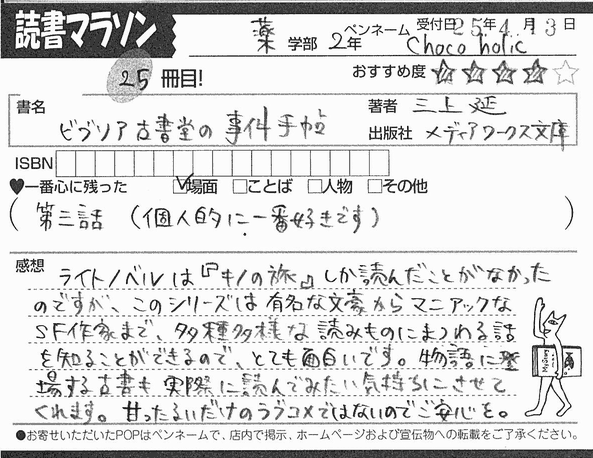 読書マラソン
受付日25年4月13日
薬 学部 2年 ペンネーム Choco holic
25 冊目! おすすめ度 ★★★★☆
書名 ビブリア古書堂の事件手帖
著者 三上 延
出版社 メディアワークス文庫
ISBN
♥一番心に残った ☑場面 □ことば □人物 □その他
(第三話 (個人的に一番好きです) )
感想
ライトノベルは『キノの旅』しか読んだことがなかった
のですが、このシリーズは有名な文豪からマニアックな
SF作家まで、多種多様な読みものにまつわる話
を知ることができるので、とても面白いです。物語に登
場する古書も実際に読んでみたい気持ちにさせて
くれます。甘ったるいだけのラブコメではないのでご安心を。
●お寄せいただいたPOPはペンネームで、店内で掲示、ホームページおよび宣伝物への転載をご了承ください。